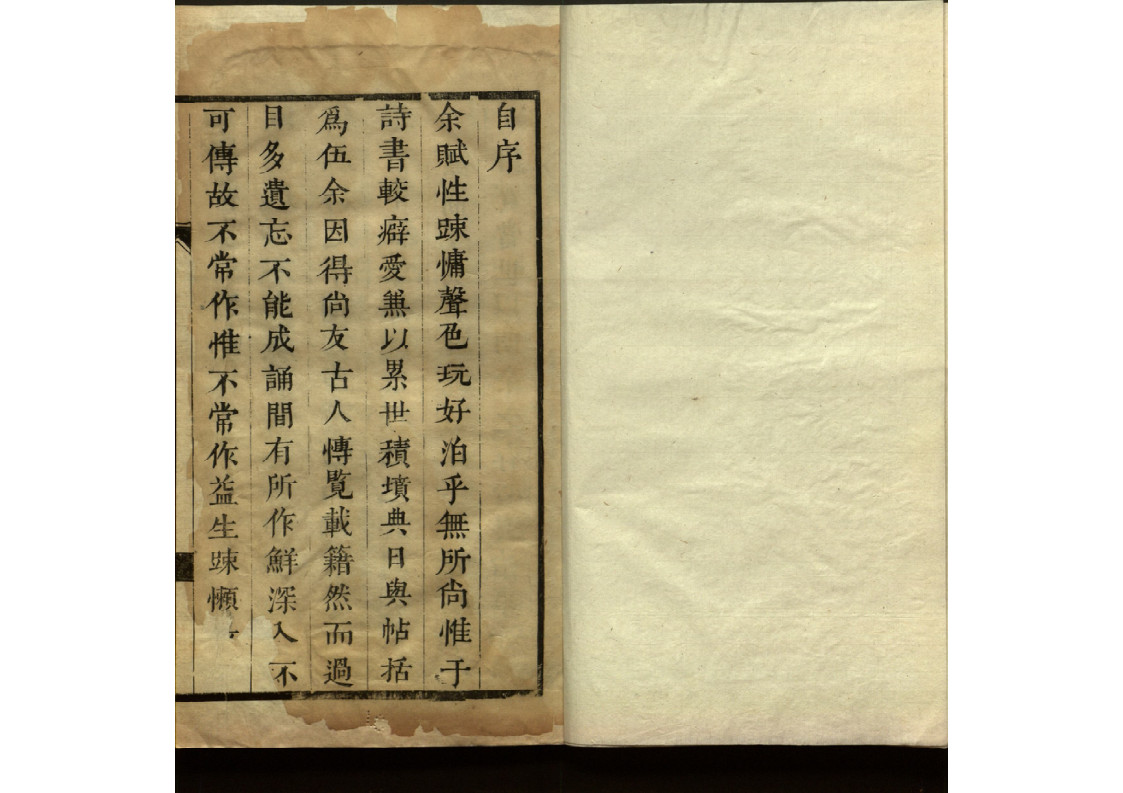 自序
余賦性踈慵聲色玩好泊乎無所尙惟于
詩書較癖愛兼以累世積墳典日與帖括
爲伍余因得尙友古人愽覧載籍然而過
目多遺忘不能成誦間有所作鮮深入不
可傳故不常作惟不常作益生踈懶